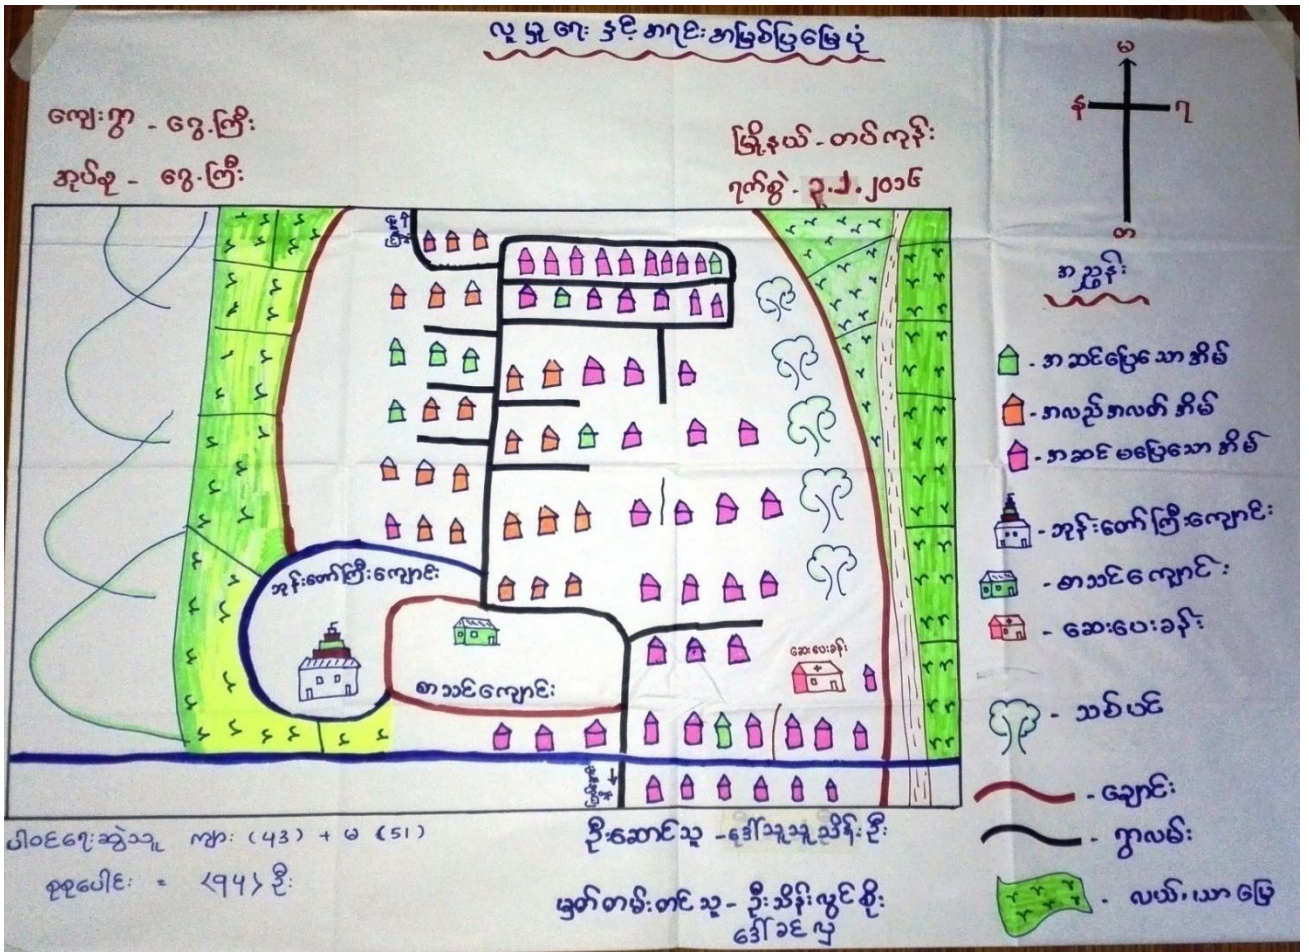 လူမှုရေး နှင့် အရင်းအမြစ်ပြမြေပုံ
ကျေးရွာ - ငွေ့ကြီး
အုပ်စု - ငွေ့ကြီး
မြို့နယ် - တပ်ကုန်း
ရက်စွဲ - ၃.၂.၂၀၁၆
မ
န
ရ
တ
အညွှန်း
- အဆင်ပြေသောအိမ်
- အလည်အလတ်အိမ်
- အဆင်မပြေသောအိမ်
- ဘုန်းတော်ကြီးကျောင်း
- စာသင်ကျောင်း
- ဆေးပေးခန်း
- သစ်ပင်
- ချောင်း
- ရွာလမ်း
- လယ်၊ ယာမြေ
ဘုန်းတော်ကြီးကျောင်း
စာသင်ကျောင်း
ဆေးပေးခန်း
ပါဝင်ရေးဆွဲသူ ကျား (43) + မ (51)
စုစုပေါင်း = <၉၄> ဦး
ဦးဆောင်သူ - ဒေါ်သူသူသိန်းဦး
မှတ်တမ်းတင်သူ - ဦးသိန်းလွင်စိုး
ဒေါ်ခင်လှ